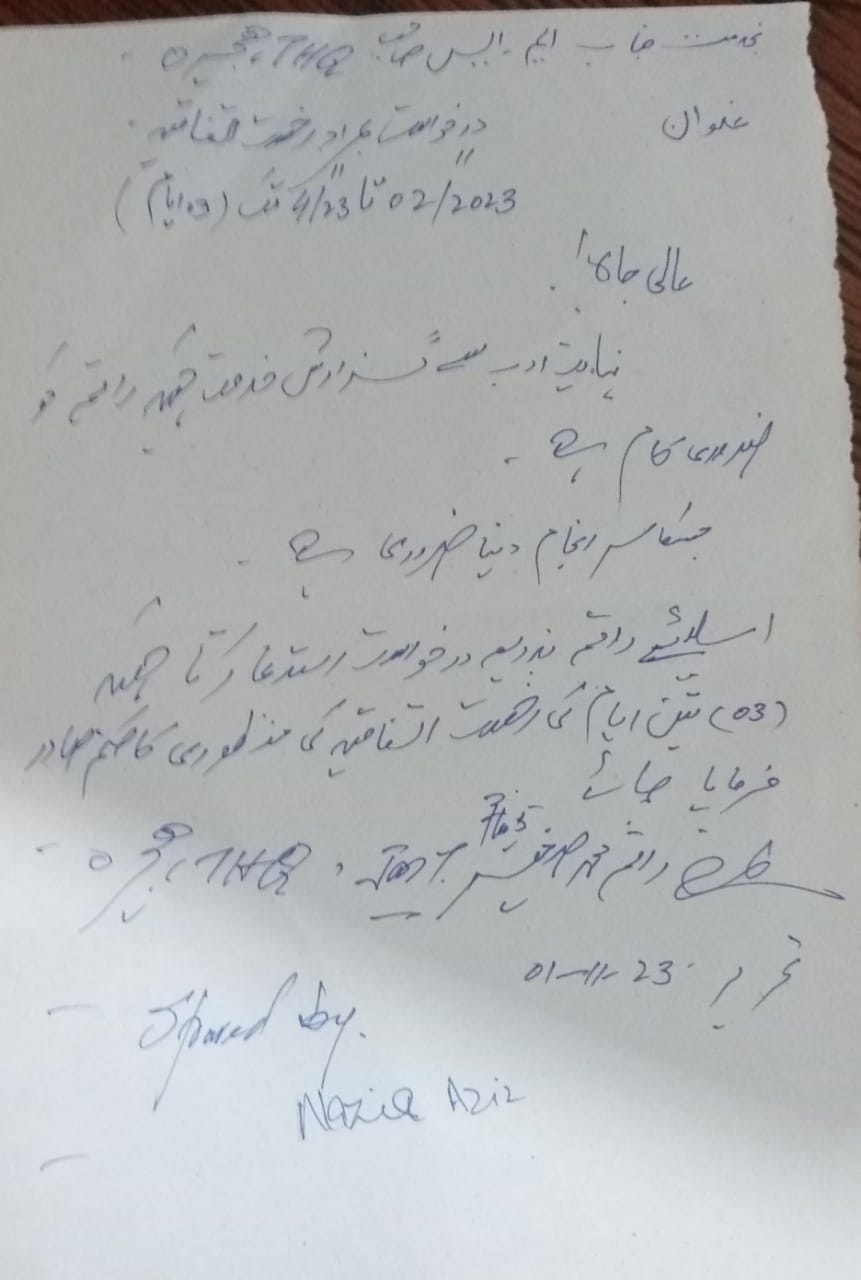 بخدمت جناب ایم۔ایس صاحب THQ ہجیرہ۔
عنوان درخواست بمراد رخصت اتفاقیہ۔
02/11/2023 تا 4/11/23 تک (03 ایام)
عالی جاہ!
نہایت ادب سے گزارش خدمت ہیکہ راقم کو
ضروری کام ہے۔
جسکا سر انجام دینا ضروری ہے۔
اسلئے راقم بذریعہ درخواست استدعا کرتا ہیکہ
(03) تین ایام کی رخصت اتفاقیہ کی منظوری کا حکم صادر
فرمایا جائے
راقم محمد THQ، ہجیرہ۔
تحریر 01-11-23
by.
Nazia Aziz